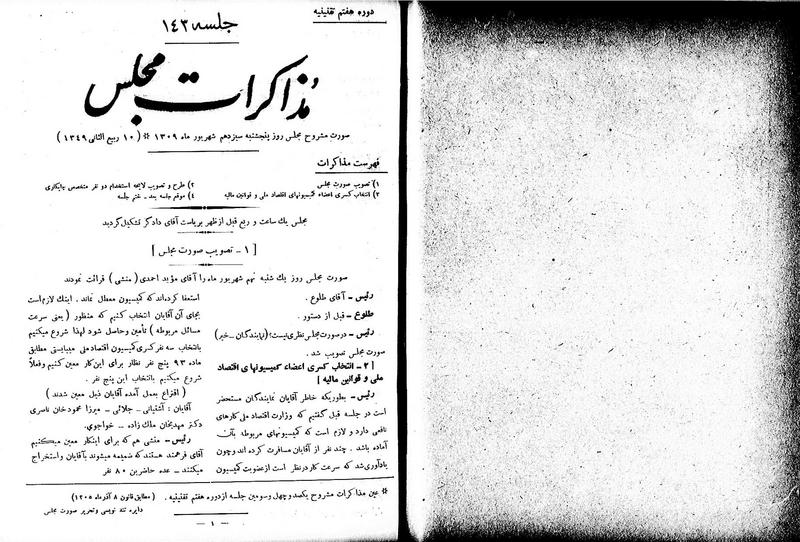 دوره هفتم تقنینیه
جلسه ۱۴۳
مذاکرات مجلس
صورت مشروح مجلس روز پنجشنبه سیزدهم شهریور ماه ۱۳۰۹ * ( ۱۰ ربیع الثانی ۱۳۴۹ )
فهرست مذاکرات
۱) تصویب صورت مجلس
۲) انتخاب کسری اعضاء کمیسیونهای اقتصاد ملی و قوانین مالیه
۳) طرح و تصویب لایحه استخدام دو نفر متخصص چاپکاری
۴) موقع جلسه بعد ـ ختم جلسه
مجلس یك ساعت و ربع قبل از ظهر بریاست آقای دادگر تشکیل گردید
[ ۱ ـ تصویب صورت مجلس ]
صورت مجلس روز یك شنبه نهم شهریور ماه را آقای مؤید احمدی ( منشی ) قرائت نمودند
رئیس ـ آقای طلوع .
طلوع ـ قبل از دستور .
رئیس ـ در صورت مجلس نظری نیست؟ (نمایندگان ـ خیر)
صورت مجلس تصویب شد .
[ ۲ ـ انتخاب کسری اعضاء کمیسیونهای اقتصاد
ملی و قوانین مالیه ]
رئیس ـ بطوریکه خاطر آقایان نمایندگان مستحضر
است در جلسه قبل گفتیم که وزارت اقتصاد ملی کارهای
نافعی دارد و لازم است که کمیسیونهای مربوطه بآن
آماده باشد . چند نفر از آقایان مسافرت کرده اند و چون
یادآوری شد که سرعت کار در نظر است از عضویت کمیسیون
استعفا کرده‌اند که کمیسیون معطل نماند . اینك لازم است
بجای آن آقایان انتخاب کنیم که منظور ( یعنی سرعت
مسائل مربوطه ) تأمین و حاصل شود لهذا شروع میکنیم
بانتخاب سه نفر کسری کمیسیون اقتصاد ملی میبایستی مطابق
ماده ۹۳ پنج نفر نظار برای این کار معین کنیم و فعلاً
شروع میکنیم بانتخاب این پنج نفر .
( اقتراع بعمل آمده آقایان ذیل معین شدند )
آقایان : آشتیانی ـ جلائی ـ میرزا محمود خان ناصری
دکتر مهدیخان ملك زاده ـ خواجوی.
رئیس ـ منشی هم که برای اینکار معین میکنیم
آقای فرهمند هستند که ضمیمه میشوند بآقایان و استخراج
میکنند ـ عده حاضرین ۸۰ نفر
* عین مذاکرات مشروح یکصد و چهل و سومین جلسه از دوره هفتم تقنینیه . ( مطابق قانون ۸ آذرماه ۱۳۰۵ )
دایره تند نویسی و تحریر صورت مجلس
ـ ۱ ـ